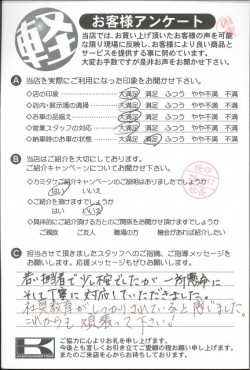 軽
お客様アンケート
当店では、お買い上げ頂いたお客様の声を可能
な限り現場に反映し、お客様により良い商品と
サービスを提供する事に努めています。
大変お手数ですが是非お声をお聞かせ下さい。
A 当店を実際にご利用になった印象をお聞かせ下さい。
◇店の印象 大満足 満足 ふつう やや不満 不満
◇店内・展示場の清掃 大満足 満足 ふつう やや不満 不満
◇お車の品揃え 大満足 満足 ふつう やや不満 不満
◇営業スタッフの対応 大満足 満足 ふつう やや不満 不満
◇納車時のお車の状態 大満足 満足 ふつう やや不満 不満
B 当店はご紹介を大切にしております。
ご紹介キャンペーンについてお聞かせ下さい。
◇カミタケご紹介キャンペーンのご説明はありましたでしょうか
はい いいえ
◇ご紹介を頂けますでしょうか
はい いいえ
◇具体的にご紹介頂ける方とのご関係をお聞かせ頂けますでしょうか
ご親族 ご友人 職場の方 機会があれば紹介したい
C 担当させて頂きましたスタッフへのご指摘、ご指導メッセージを
お願いします。応援メッセージもぜひお願いします。
若い担当者で少し不安でしたが一所懸命に
そして丁寧に対応していただきました。
社員教育がしっかりされていると感じました。
これからも頑張って下さい!
K
ご協力に心よりお礼を申し上げます。
今後とも宜しくお引き立てご愛顧の程お願い申し上げます。
またのご来店を心からお待ちしております。